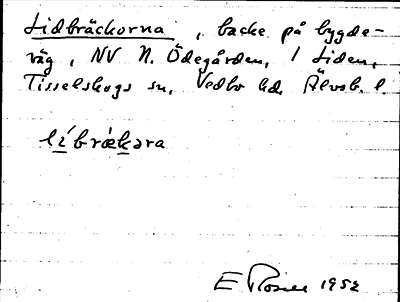 Lidbräckorna, backe på bygde-
väg, NV N. Ödegården, 1 Liden,
Tisselskogs sn, Vedbo hd, Älvsb. l.
li´bræ`kəra
E Rosell 1952